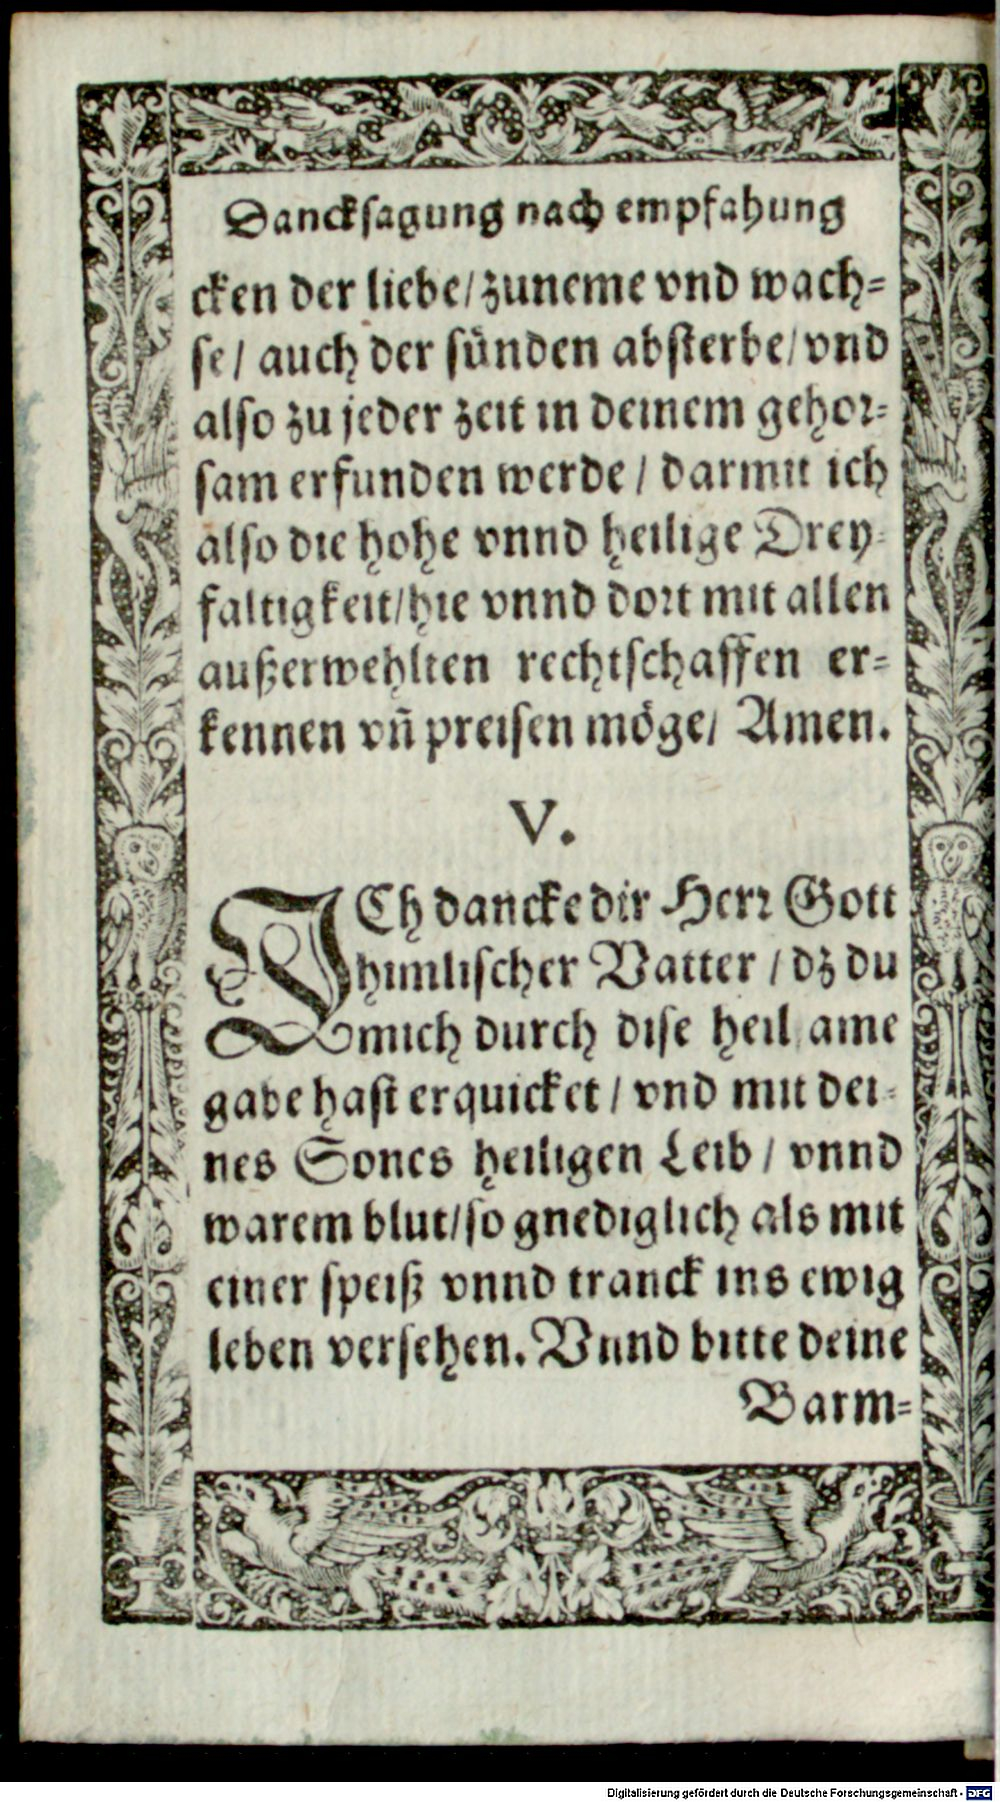 Dancksagung nach empfahung
cken der liebe/ zuneme vnd wach-
se/ auch der sünden absterbe/ vnd
also zu jeder zeit in deinem gehor-
sam erfunden werde/ darmit ich
also die hohe vnnd heilige Drey-
faltigkeit/ hie vnnd dort mit allen
außerwehlten rechtschaffen er-
kennen vñ preisen möge/ Amen.
V.
ICh dancke dir Herr Gott
himlischer Vatter/ dz du
mich durch dise heilsame
gabe hast erquicket/ vnd mit dei-
nes Sones heiligen Leib/ vnnd
warem blut/ so gnediglich als mit
einer speiß vnnd tranck ins ewig
leben versehen. Vnnd bitte deine
Barm-
Digitalisierung gefördert durch die Deutsche Forschungsgemeinschaft - DFG